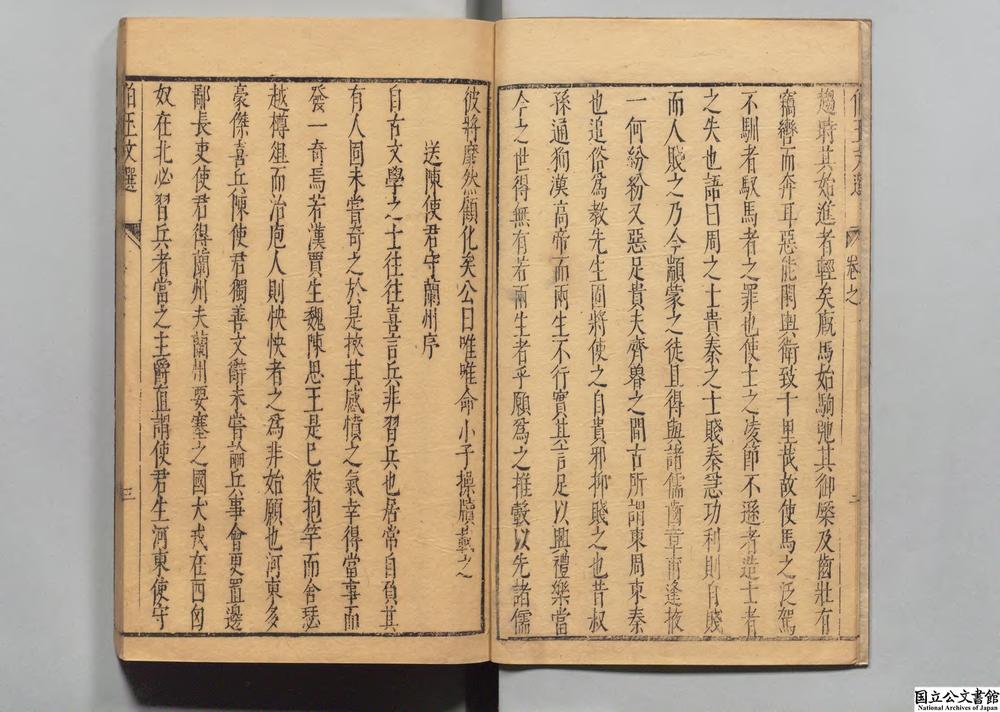 伯玉文選 卷之
趨時其始進者輕矣廐馬始駒弛其御槩及齒壯有
竊轡而奔耳惡能閑輿衛致千里哉故使馬之泛駕
不馴者馭馬者之罪也使士之凌節不遜者造士者
之失也語曰周之士貴秦之士賤秦急功利則自賤
而人賤之乃今顓蒙之徒且得與諸儒齒章甫逢掖
一何紛紛又惡足貴夫齊魯之間古所謂東周東秦
也追俗爲教先生固將使之自貴邪抑賤之也昔叔
孫通徇漢高帝而兩生不行實其言足以興禮樂當
今之世得無有若兩生者乎願爲之推轂以先諸儒
彼將靡然顧化矣公曰唯唯命小子操牘載之
送陳使君守蘭州序
自古文學之士往往喜言兵非習兵也居常自負其
有人固未嘗奇之於是挾其感憤之氣幸得當事而
發一奇焉若漢賈生魏陳思王是已彼抱竽而舍瑟
越樽俎而治庖人則怏怏者之爲非始願也河東多
豪傑喜兵陳使君獨善文辭未嘗論兵事會更置邊
鄙長吏使君得蘭州夫蘭州要塞之國犬戎在西匈
奴在北必習兵者當之主爵直謂使君生河東使守
伯玉文選 三
国立公文書館
National Archives of Japan